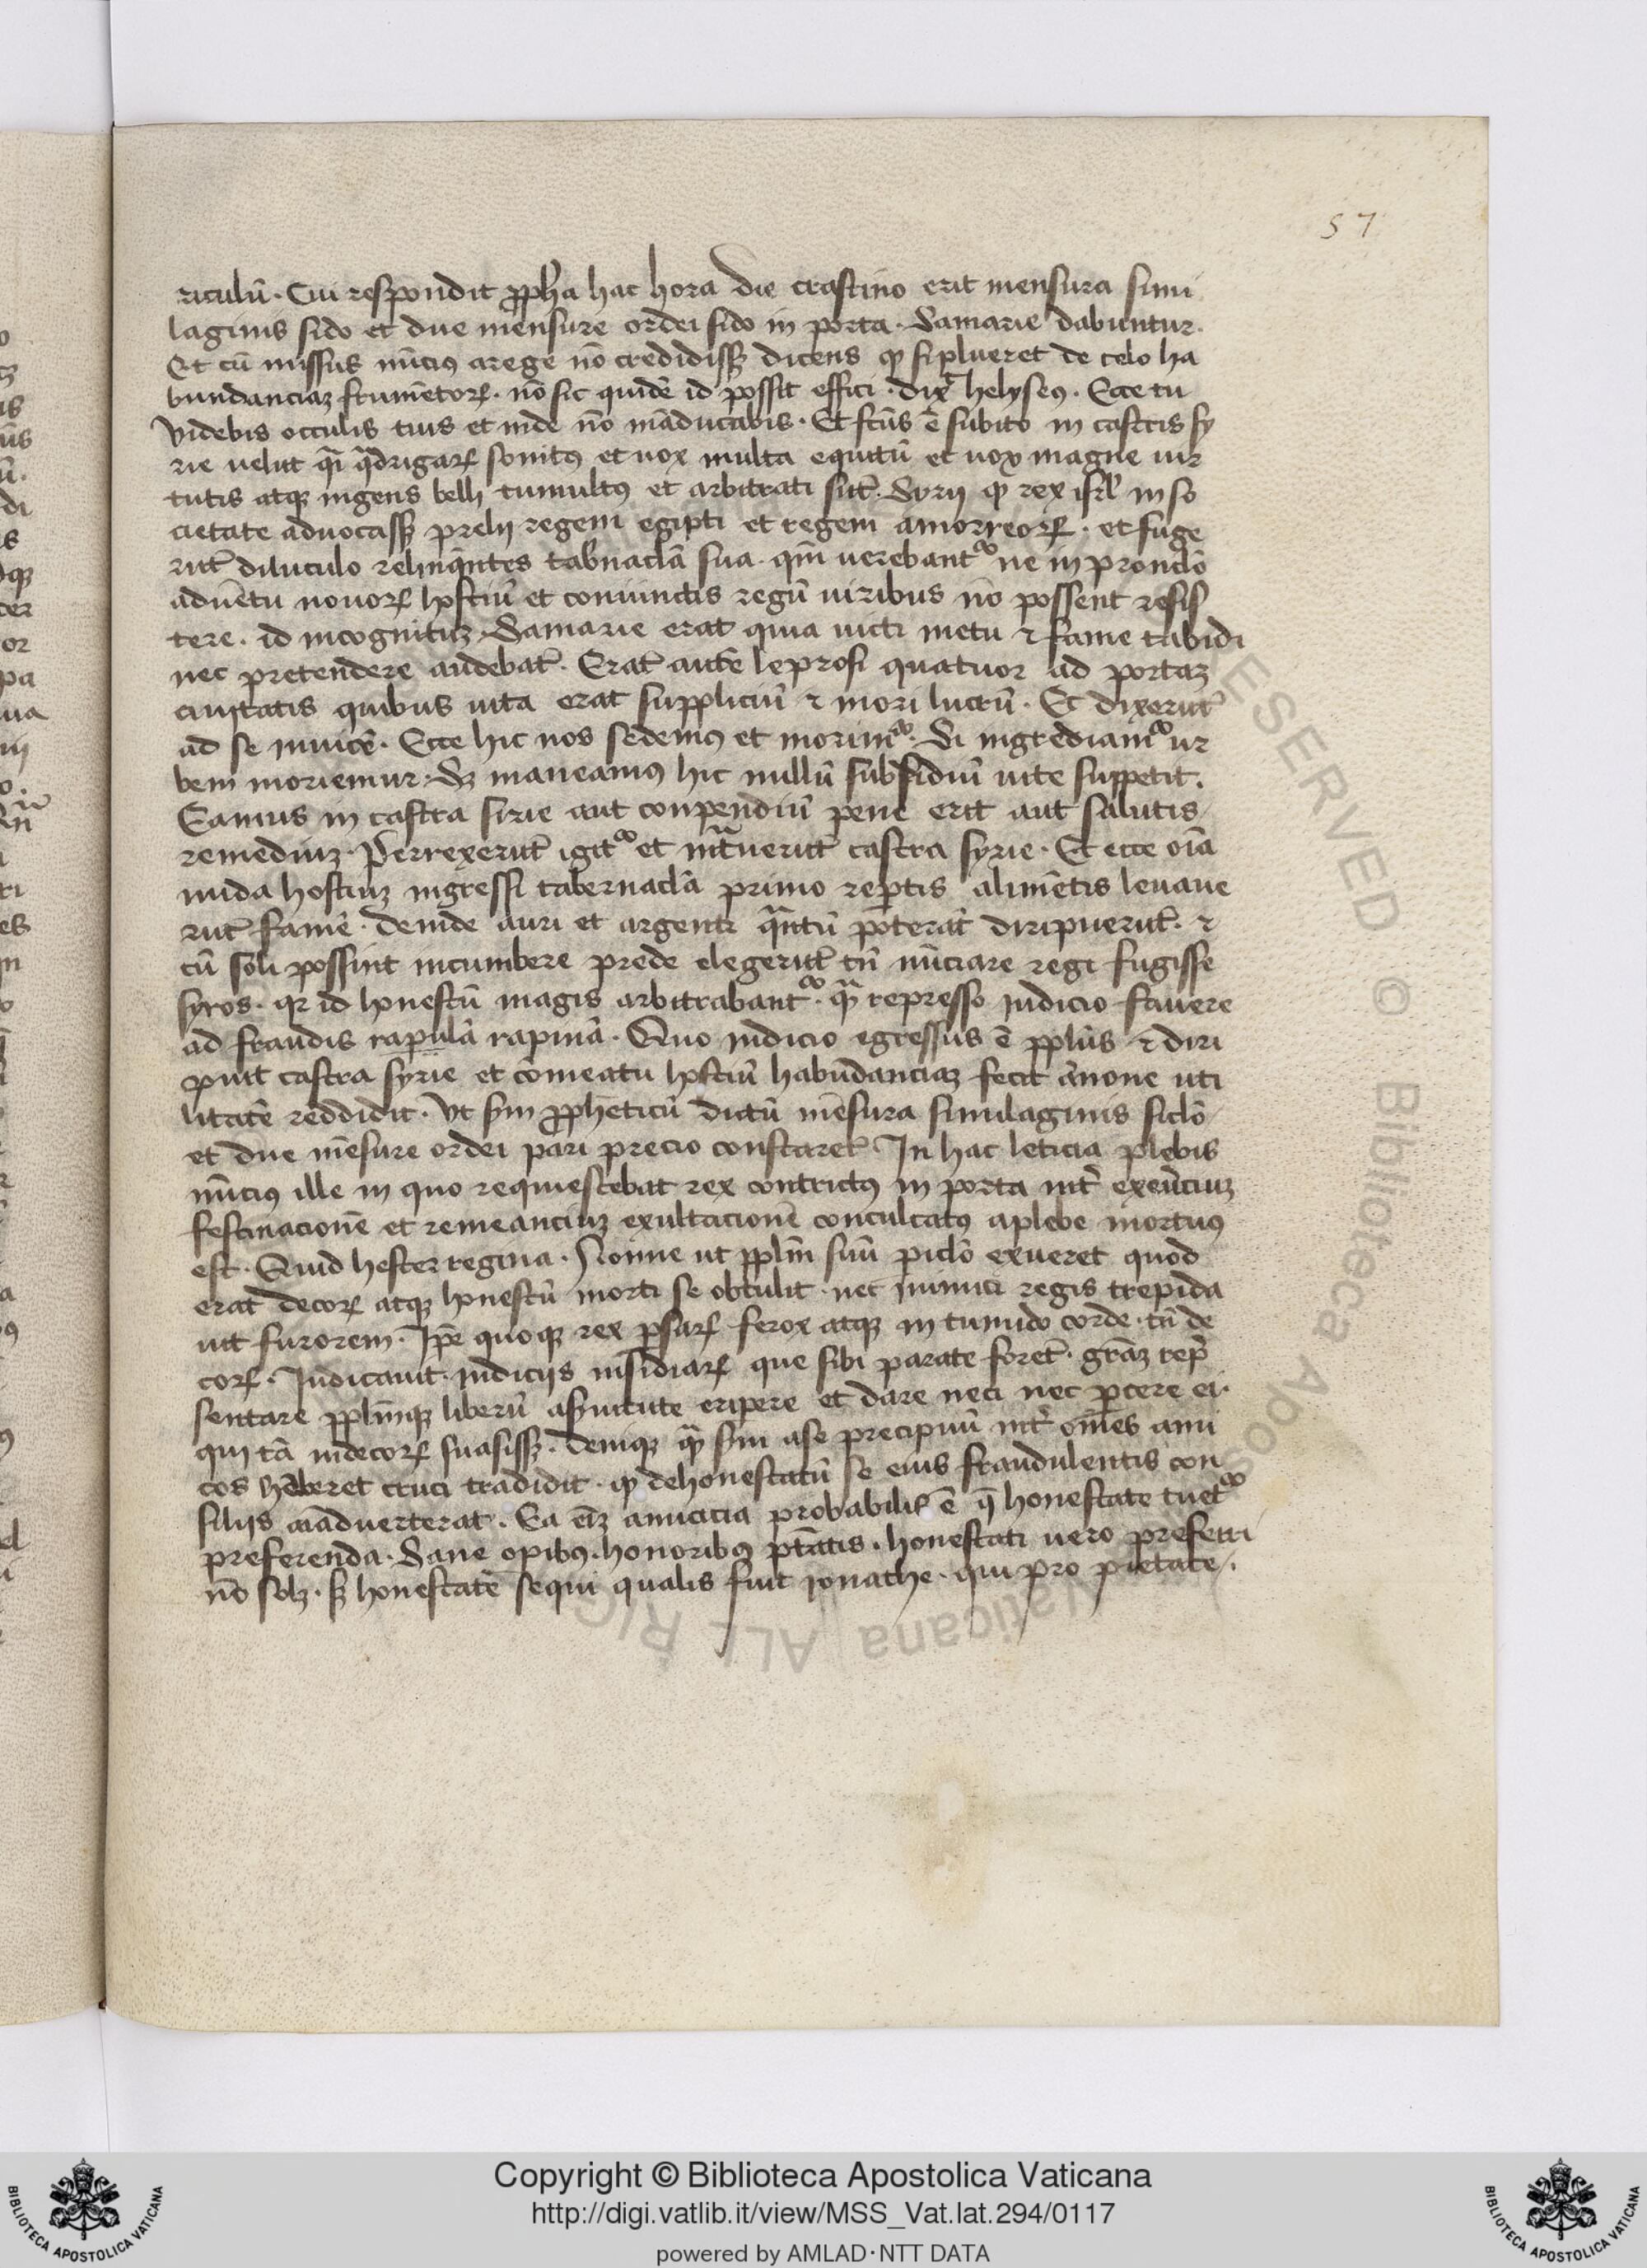 57
riculū. Cui respondit ꝓph̄a hac hora die crastino erit mensura simi
laginis siclo et due mensure ordei siclo in porta. Samarie dabuntur.
Et cū missus nūcius arege nō credidissꝫ dicens ꝙ siplueret de celo ha
bundanciaꝫ frumētoꝝ. nō sic quidē id possit effici. dixͭ helyseꝰ. Ecce tu
videbis occulis tuis et inde nō māducabis. Et fcūs ē subito in castris sy
rie uelut q̄i q̄drigaꝝ sonitꝰ et uox multa equitū et uox magne uir
tutis atqꝫ ingens belli tumultꝰ et arbitrati sūt. Syrij ꝙ rex isrl̄ in so
cietate aduocassꝫ prelij regem egipti et regem amorreoꝝ. et fuge
rūt diluculo relinq̄ntes tab̄nacl̄a sua. qm̄ uerebant᷑ ne in prouclō
aduētu nouoꝝ hostiū et coniunctis regū uiribus nō possent resis
tere. id incognituꝫ. Samarie erat quia uicti metu ⁊ fame tabidi
nec pretendere audebāt. Erāt autē leprosi quatuor ad portaꝫ
ciuitatis quibus uita erat suppliciū ⁊ mori lucrū. Et dixerūt
ad se inuicē. Ecce hic nos sedemꝰ et morim᷑. Si ingrediam᷑ ur
bem moriemur. Sꝫ maneamꝰ hic nullū subsidiū uite suppetit.
Eamus in castra sirie aut conpendiū pene erit aut salutis
remediuꝫ. Perrexerūt igit᷑ et int̄uerūt castra syrie. Et ecce oīa
nuda hostiuꝫ ingressi tabernacl̄a primo rep̄tis alimētis leuaue
rūt famē. deinde auri et argenti q̄ntū poterāt diripuerūt. ⁊
cū soli possint incumbere prede elegerūt tn̄ nūciare regi fugisse
syros. qr id honestū magis arbitrabant᷑. q̄ꝫ represso iudicio fauere
ad fraudis rapulā rapinā. Quo indicio egressus ē ppl̄us ⁊ diri
puit castra syrie et cōmeatu hostiū habūdanciaꝫ fecit ānone uti
litatē reddidit. Vt sm̄ ꝓpheticū dictū mēsura simulaginis siclō
et due mēsure ordei pari precio constaret. In hac leticia plebis
nūcius ille in quo requiescebat rex contrictꝰ in porta int̄ exeūciuꝫ
festinacionē et remeanciuꝫ exultacionē conculcatꝰ aplebe mortuꝰ
est. Quid hester regina. Nonne ut ppl̄m suū piclō exueret quod
erat decoꝝ atqꝫ honestū morti se obtulit. nec inmiti regis trepida
uit furorem. Ip̄e quoqꝫ rex ꝑsaꝝ ferox atqꝫ in tumido corde. tn̄ de
coꝝ. Iudicauit. indicijs insidiaꝝ que sibi parate forēt. grāꝫ rep̄
sentare ppl̄mqꝫ liberū as̄uitute eripere et dare neci nec ꝑcere ei.
qui tā indecoꝝ suasissꝫ. deniqꝫ q̄ꝫ sm̄ ase precipuū int̄ oēs ami
cos hēberet cruci tradidit. ꝙ dehonestatū se eius fraudulentis con
silijs aīaduerterat. Ea eīꝫ amicicia probabilis ē q̄ honestate tuet᷑
preferenda. Sane opibꝰ. honoribꝰ ptātis. honestati uero preferri
nō solꝫ. sꝫ honestatē sequi qualis fuit ionathe. qui pro pietate.
Copyright © Biblioteca Apostolica Vaticana
http://digi.vatlib.it/view/MSS_Vat.lat.294/0117
powered by AMLAD·NTT DATA